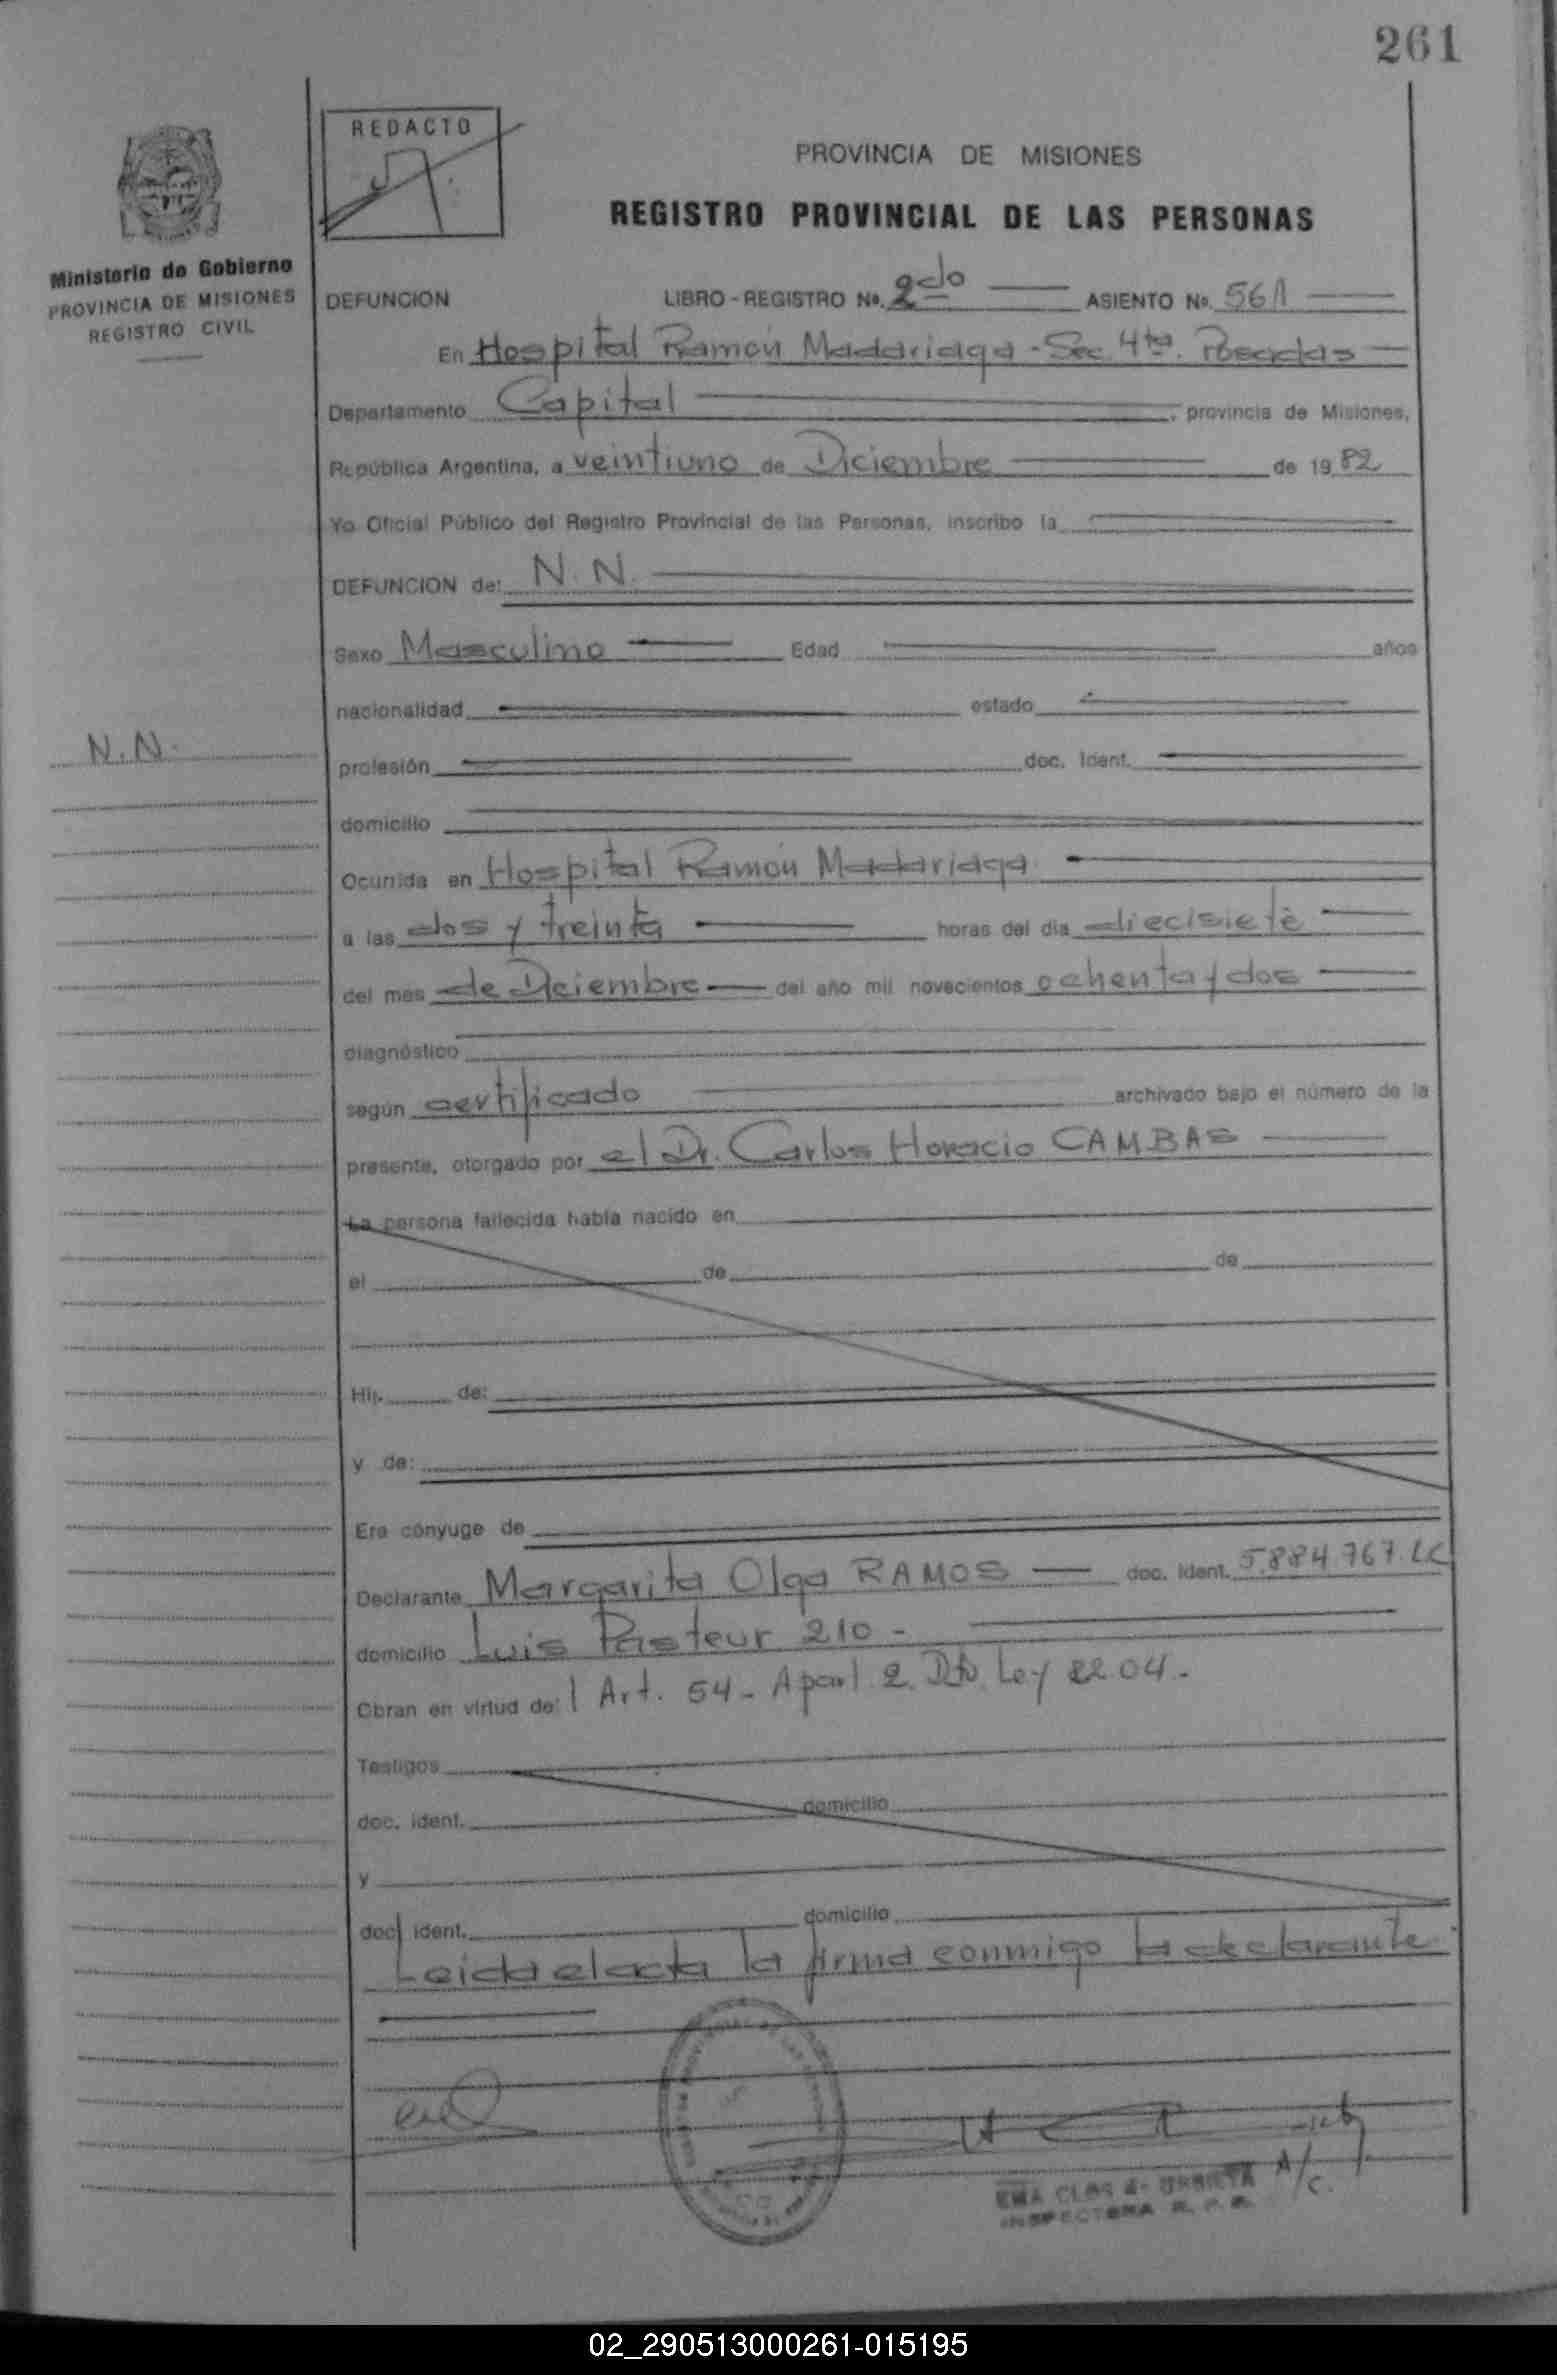 261
REDACTO
PROVINCIA DE MISIONES
REGISTRO PROVINCIAL DE LAS PERSONAS
Ministerio de Gobierno
PROVINCIA DE MISIONES
REGISTRO CIVIL
DEFUNCION LIBRO - REGISTRO No. 2do ASIENTO No. 561
En Hospital Ramón Madariaga - Sec. 4ta. Posadas
Departamento Capital , provincia de Misiones,
República Argentina, a veintiuno de Diciembre de 1982
Yo Oficial Público del Registro Provincial de las Personas, inscribo la
DEFUNCION de: N. N.
Sexo Masculino Edad años
nacionalidad estado
N. N.
profesión doc. Ident.
domicilio
Ocurrida en Hospital Ramón Madariaga
a las dos y treinta horas del día diecisiete
del mes de Diciembre del año mil novecientos ochenta y dos
diagnóstico
según certificado archivado bajo el número de la
presente, otorgado por el Dr. Carlos Horacio CAMBAS
La persona fallecida había nacido en
el de de
Hij. de:
y de:
Era cónyuge de
Declarante Margarita Olga RAMOS doc. Ident. 5.884.767. LC
domicilio Luis Pasteur 210 -
Obran en virtud de: l Art. 54 - Apart. 2. Dto. Ley 8204 -
Testigos
doc. ident. domicilio
y
doc. ident. domicilio
Leida el acta la firma conmigo la declarante
A/c.
INSPECTORA R. P. P.
02_290513000261-015195